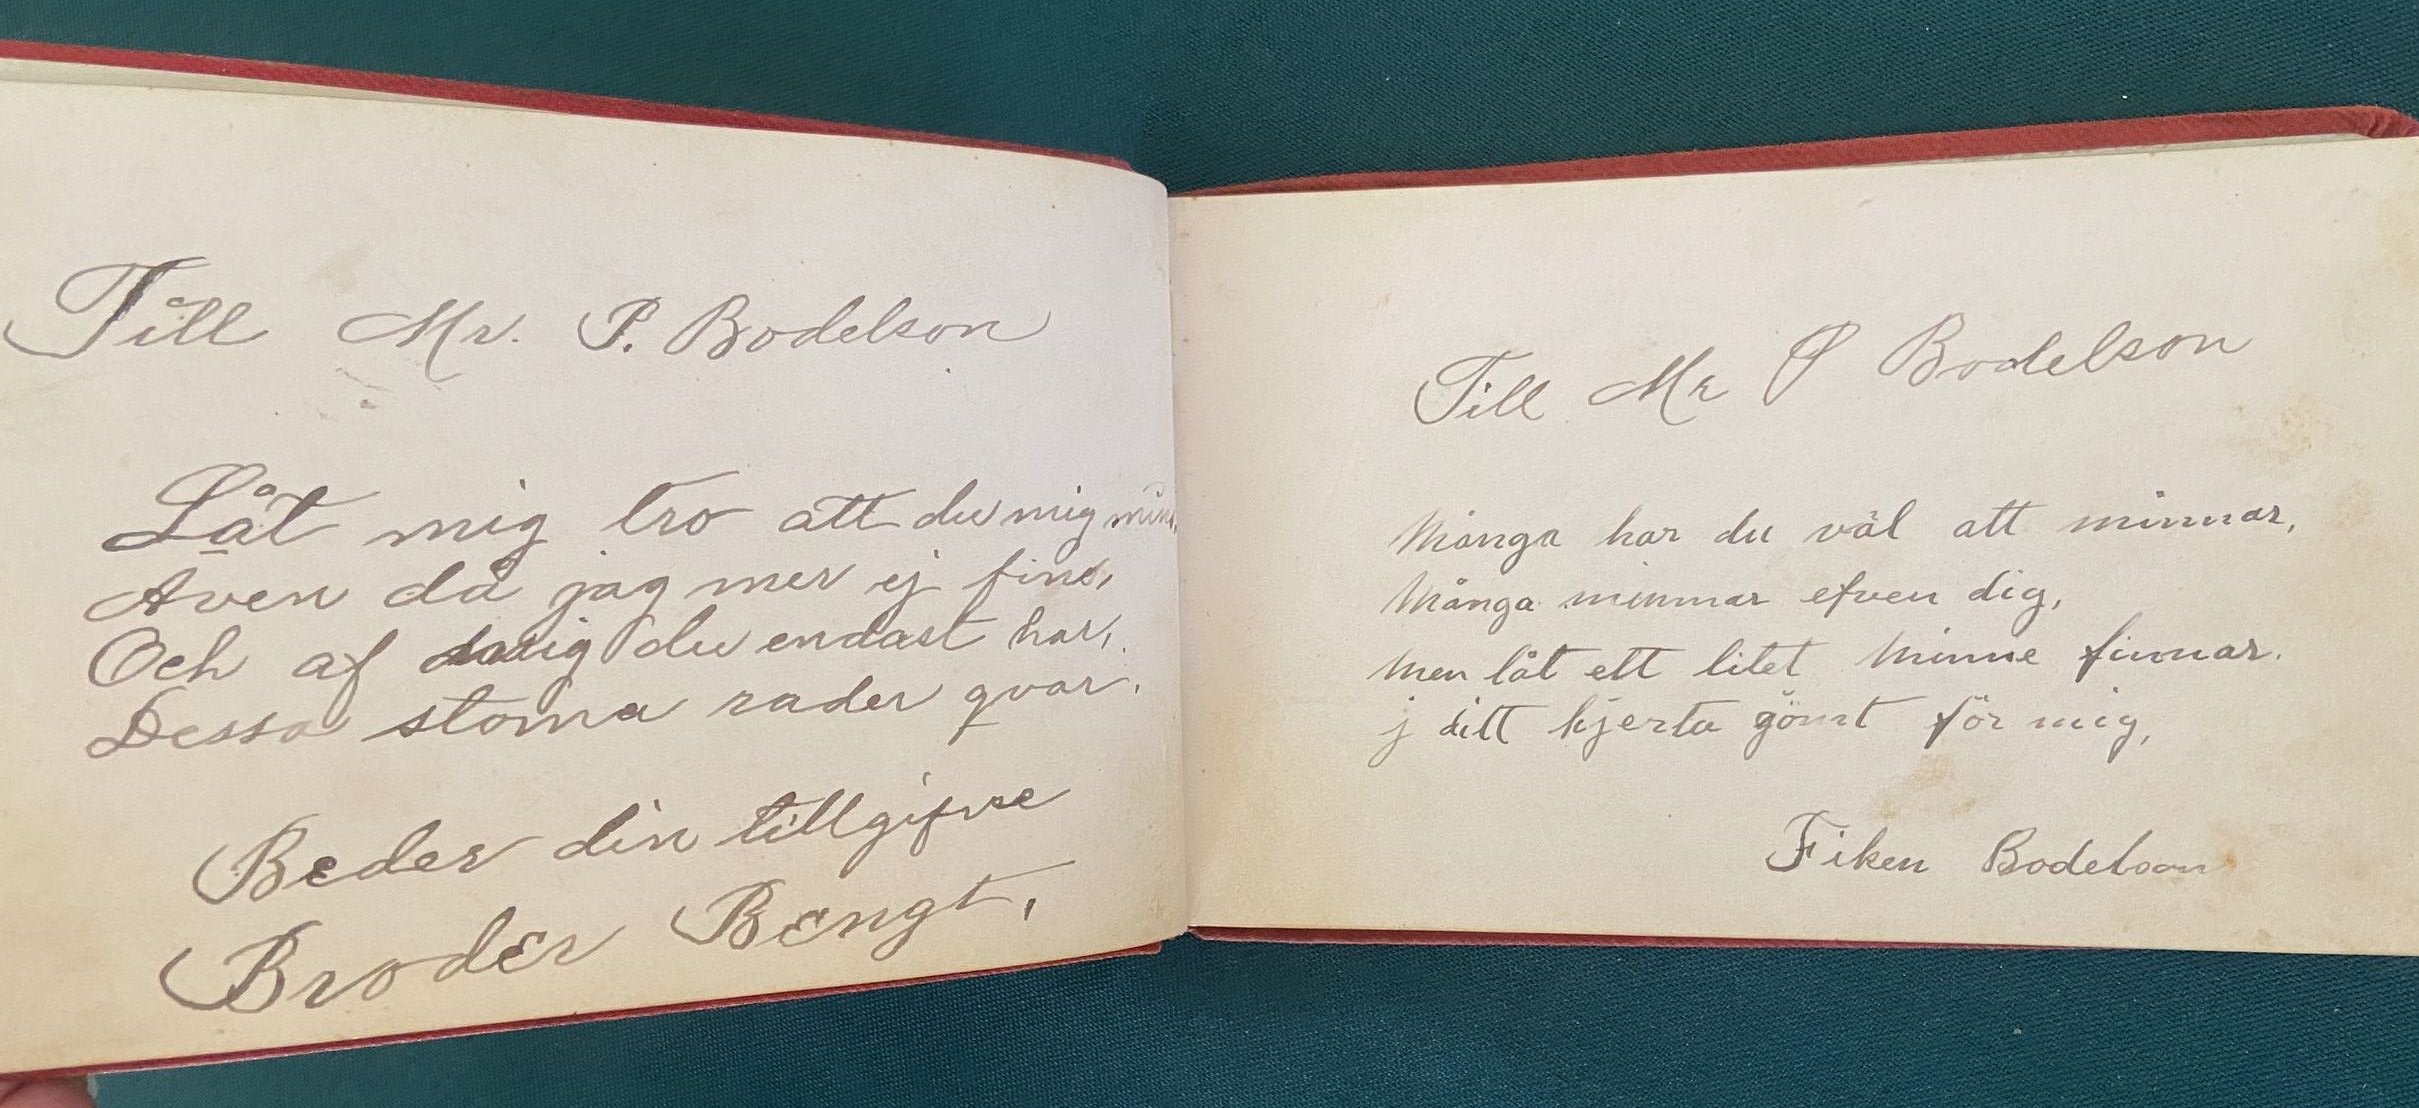 Till Mr. P. Bodelson
Låt mig tro att du mig
Aven då jag mer ej fins,
Och af mig du endast har,
Dessa stoma rader qvar.
Beder din tillgifvse
Broder Bengt,
Till Mr P Bodelson
Många har du väl att minnar,
Många minnar efven dig,
Men låt ett litet Minne finnar.
j ditt hjerta gömt för mig,
Fiken Bodelson